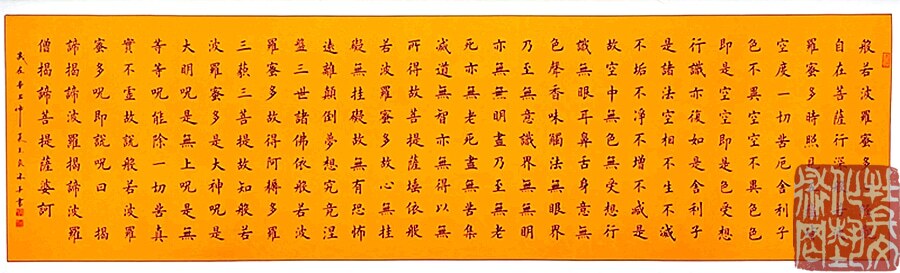 般若波羅蜜多
自在菩薩行深
羅蜜多時照見
空度一切苦厄舍利子
色不異空空不異色色
即是空空即是色受想
行識亦復如是舍利子
是諸法空相不生不滅
不垢不淨不增不減是
故空中無色無受想行
識無眼耳鼻舌身意無
色聲香味觸法無眼界
乃至無意識界無無明
亦無無明盡乃至無老
死亦無老死盡無苦集
滅道無智亦無得以無
所得故菩提薩埵依般
若波羅蜜多故心無挂
礙無挂礙故無有恐怖
遠離顛倒夢想究竟涅
盤三世諸佛依般若波
羅蜜多故得阿耨多羅
三藐三菩提故知般若
波羅蜜多是大神呪是
大明呪是無上呪是無
等等呪能除一切苦真
實不虛故說般若波羅
蜜多呪即說呪曰揭
諦揭諦波羅揭諦波羅
僧揭諦菩提薩婆訶